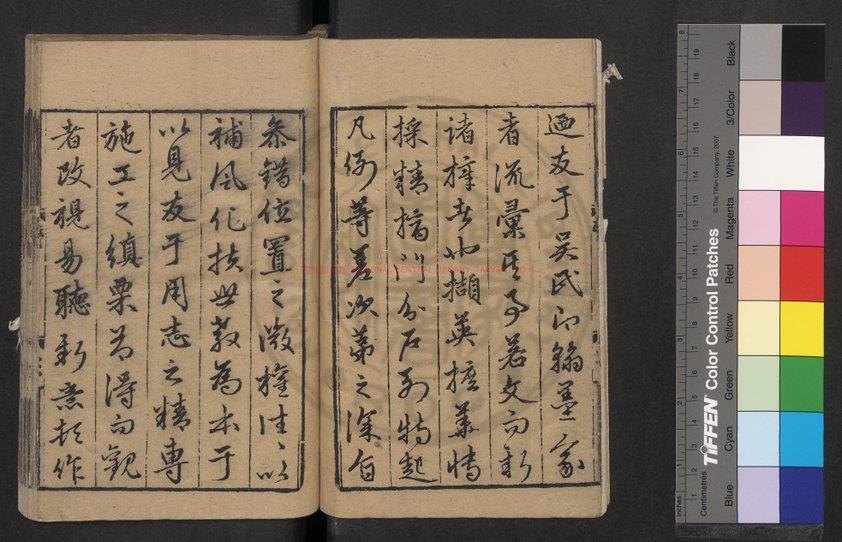 迺友于吳氏以翰墨家
者流彙其事若文而新
諸梓者也擷英摭華博
採精摘門分戶列特起
凡例等差次第之深旨
參錯位置之微權往往以
補風化扶世教為本于
以見友于用志之精專
施工之縝栗而得向觀
者改視易聽新意於作
Inches
Centimetres
TIFFEN Color Control Patches
© The Tiffen Company, 2007
Blue
Cyan
Green
Yellow
Red
Magenta
White
3/Color
Black